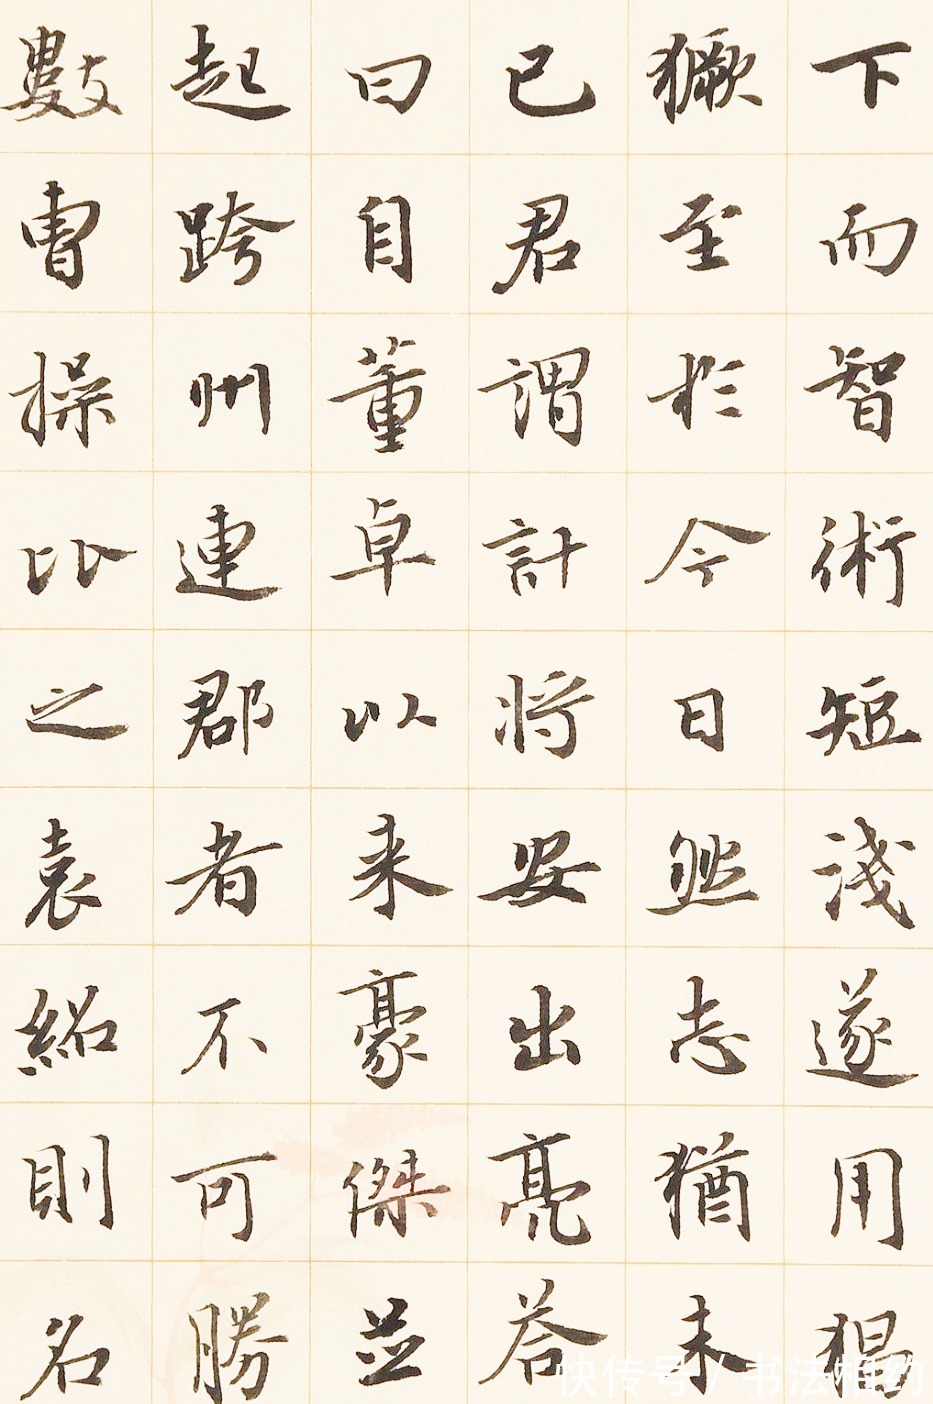 下而智術短淺遂用猖
獗至於今日然志猶未
已君謂計將安出亮荅
曰自董卓以来豪傑並
起跨州連郡者不可勝
數曹操比之袁紹則名
快传号 / 书法相约